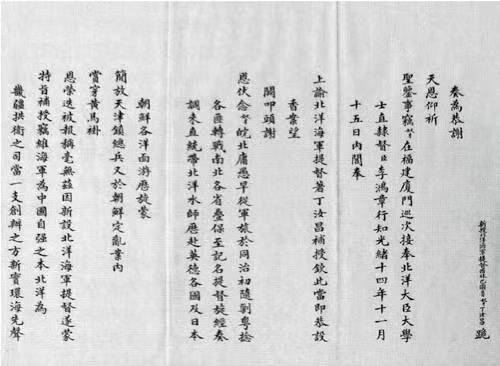 新授北洋海軍提督西林巴圖魯奴才丁汝昌跪
奏為恭謝
天恩仰祈
聖鑒事竊奴才在福建廈門巡次接奉北洋大臣大學
士直隸督臣李鴻章行知光緒十四年十一月
十五日內閣奉
上諭北洋海軍提督著丁汝昌補授欽此當即恭設
香案望
闕叩頭謝
恩伏念奴才皖北庸愚早從軍旅於同治初隨剿粵捻
各匪轉戰南北各省疊保至記名提督旋經奏
調來直統帶北洋水師歷赴英德各國及日本
朝鮮各洋面游歷旋蒙
簡放天津鎮總兵又於朝鮮定亂案內
賞穿黃馬褂
恩榮迭被報稱毫無茲因新設北洋海軍提督遂蒙
特旨補授竊維海軍為中國自强之本北洋為
畿疆拱衛之司當一支創辦之方新實環海先聲